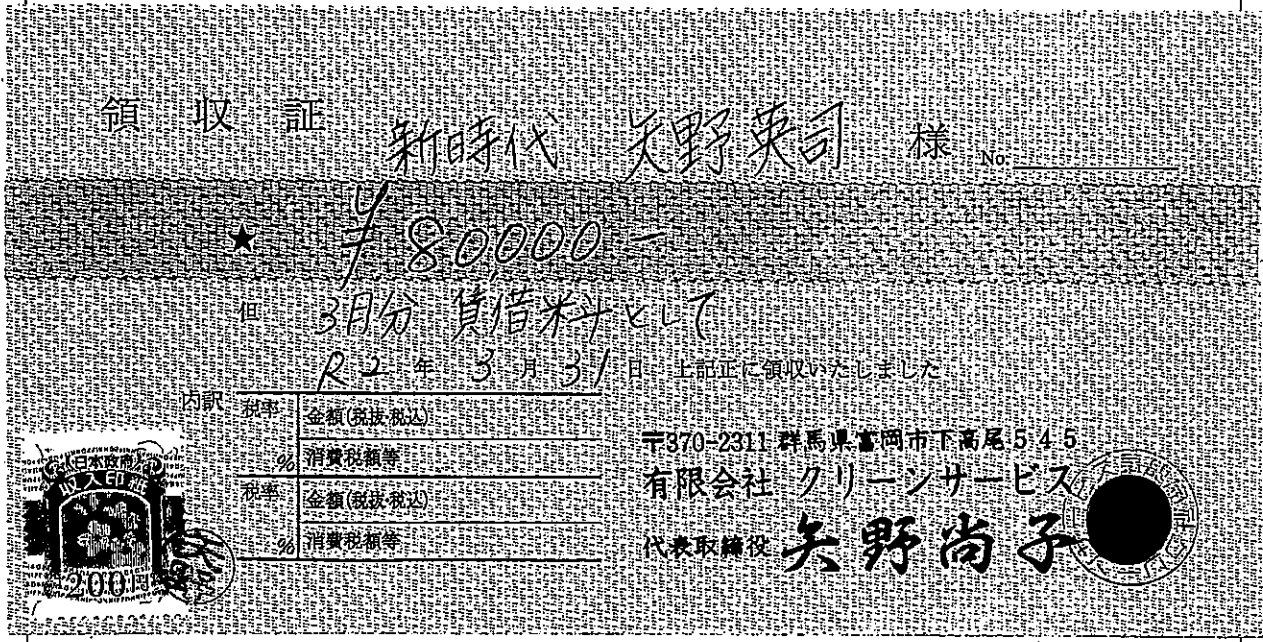 領収証 新時代 矢野英司 様 No.
★ ¥80,000-
但 3月分 賃借料として
R2年3月31日 上記正に領収いたしました
内訳
税率 金額(税抜・税込)
% 消費税額等
税率 金額(税抜・税込)
% 消費税額等
〒370-2311 群馬県富岡市下高尾545
有限会社 クリーンサービス
代表取締役 矢野尚子
日本政府
収入印紙
200円
矢野